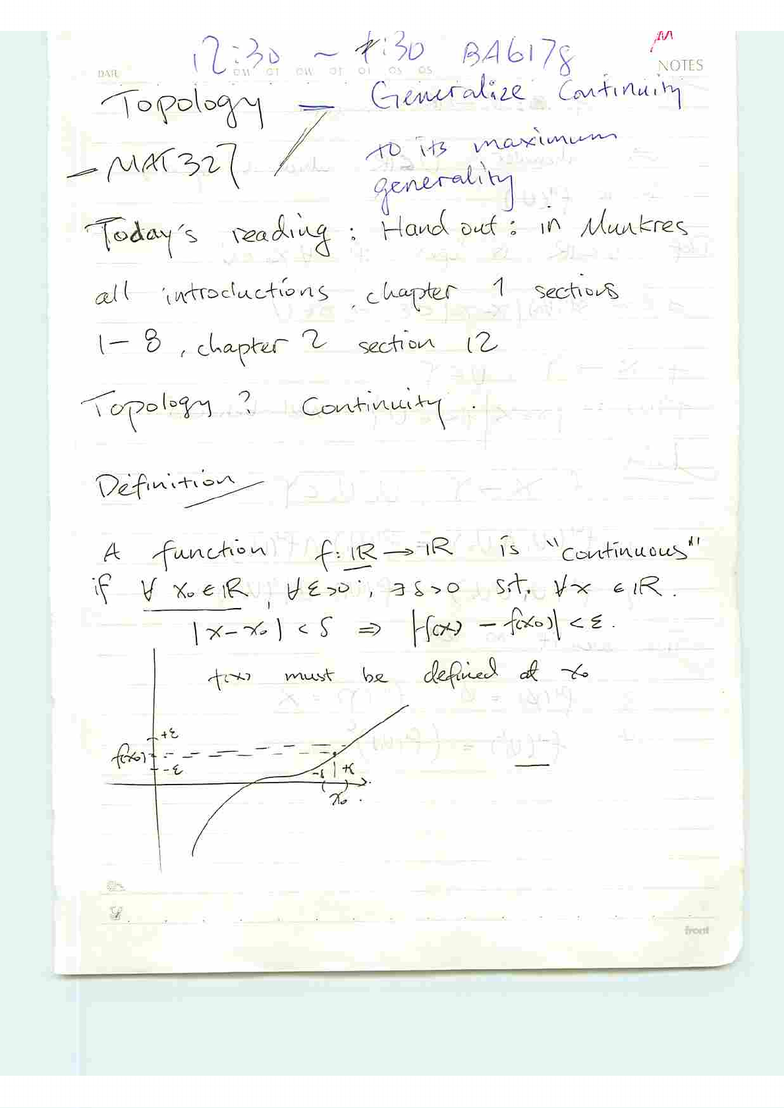 12:30 ~ 1:30 BA6178
NOTES
Topology — Generalize Continuity
to its maximum
generality
- MAT327
Today's reading : Hand out : in Munkres
all introductions, chapter 1 sections
1-8, chapter 2 section 12
Topology ? Continuity.
Definition
A function f: ℝ → ℝ is "continuous"
if ∀ x₀ ∈ ℝ, ∀ε>0, ∃ δ>0 s.t. ∀x ∈ ℝ.
|x-x₀| < δ ⇒ |f(x) - f(x₀)| < ε.
f(x) must be defined at x₀
+ε
f(x₀)
-ε
x₀
front